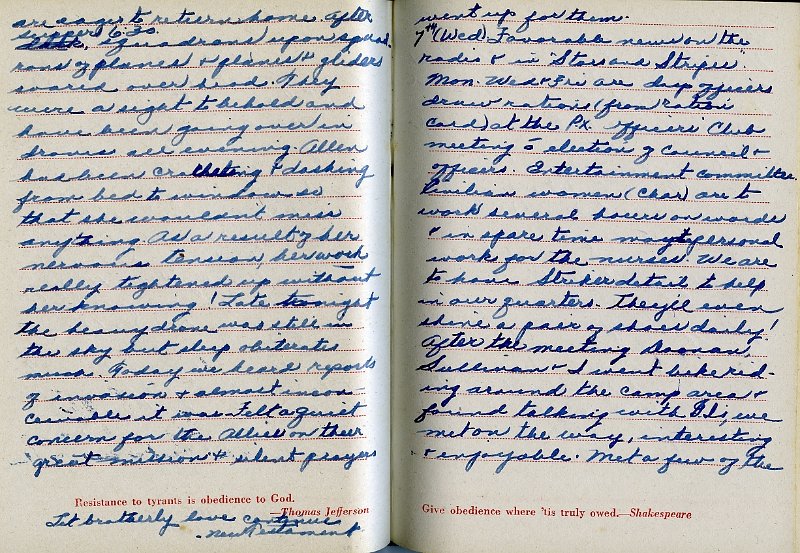 are eager to return home. After
supper 6:30.
Quadrons upon squad-
rons of planes & planes & gliders
soared over head. They
were a sight to behold and
have been going over in
droves all evening. Allen
had been crocheting & dashing
from bed to window so
that she wouldn't miss
anything. As a result of her
nervous tension, her work
really tightened up without
her knowing! Late tonight
the heavy drone was still in
the sky but sleep obliterates
much. Today we heard reports
of invasion & almost incon-
ceivable it was. Felt a quiet
concern for the Allies on their
great mission & silent prayers
Resistance to tyrants is obedience to God.
—Thomas Jefferson
Let brotherly love continue
New Testament.
went up for them.
7th (Wed) Favorable news on the
radio & in Stars and Stripes.
Mon. Wed & Fri are day officers
draw rations (from ration
card) at the P.X. Officers' Club
meeting c̄ election of council &
officers. Entertainment committee.
Civilian women (Char) are to
work several hours on wards
& in spare time may do personal
work for the nurses. We are
to have Striker details to help
in our quarters. They'll even
shine a pair of shoes daily!
After the meeting Noonan,
Sullivan & I went bike rid-
ing around the camp area &
found talking with G.I.s, we
met on the way, interesting
& enjoyable. Met a few of the
Give obedience where 'tis truly owed.—Shakespeare